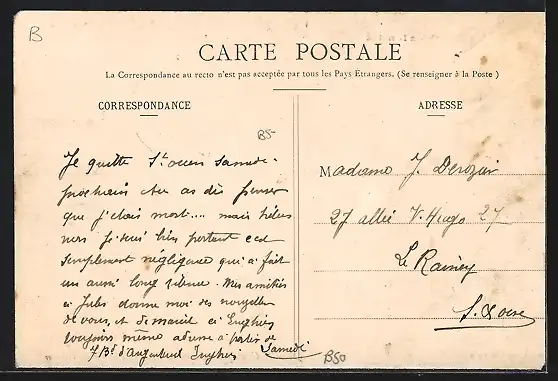 B
CARTE POSTALE
La Correspondance au recto n'est pas acceptée par tous les Pays Etrangers. (Se renseigner à la Poste)
CORRESPONDANCE
ADRESSE
B5-
Je quitte St ouen samedi
prochain tu as dû penser
que j'étais mort.... mais hélas
non je suis bien portant c'est
simplement négligence qui a fait
un aussi long silence. Mes amitiés
à Jules donne moi des nouvelles
de vous, et de à Enghien
toujours même adresse à partir de
7 Bd d'Argenteuil Enghien Samedi
B50
Madame J. Derozier
27 allée V. Hugo 27
Le Raincy
S. & Oise